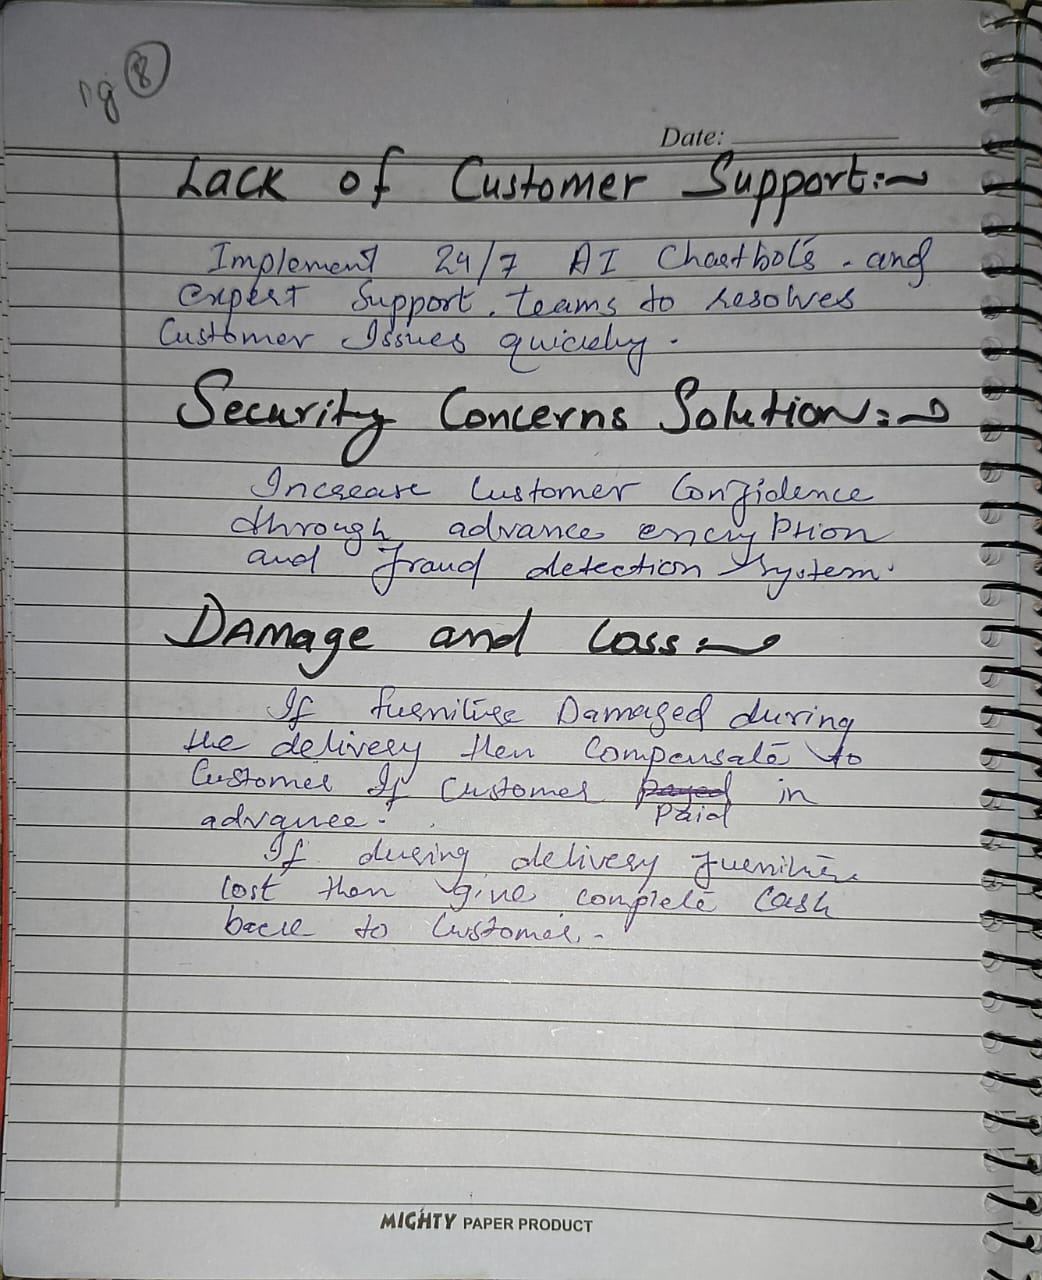 pg 8
Date:
Lack of Customer Support:~
Implement 24/7 AI Chatbots. and
expert Support. teams to resolves
Customer Issues quickly.
Security Concerns Solution:~
Increase Customer Confidence
through advance encryption
and fraud detection system.
DAmage and Loss:~
If furniture Damaged during
the delivery then Compensate to
Customer If Customer payed in
paid
advance.
If during delivery furniture
lost then give complete Cash
back to Customer.
MIGHTY PAPER PRODUCT